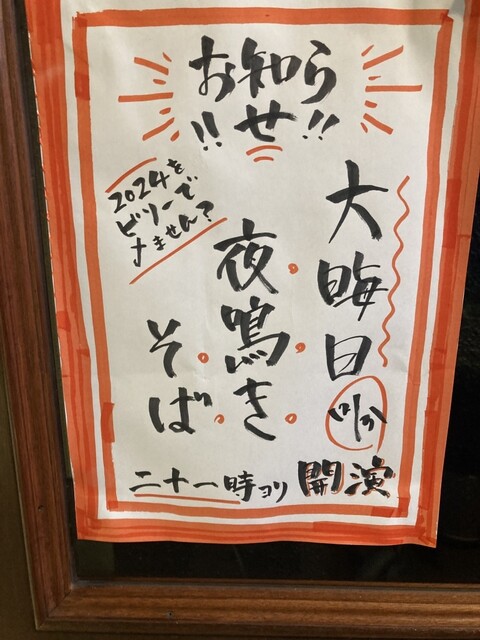 お知らせ!!
大晦日
夜鳴き
そば
2024を
ビリーで
〆ません?
二十一時ヨリ 開演